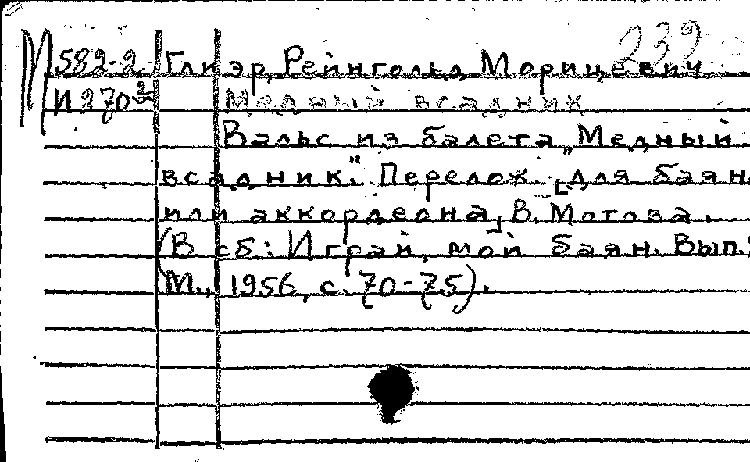 239
М 582-2 Глиэр, Рейнгольд Морицевич
И 270 2 Медный всадник
Вальс из балета „Медный
всадник“. Перелож. [для баян
или аккордеона] В. Мотова.
(В сб.: Играй, мой баян. Вып.
М., 1956, с. 70-75).